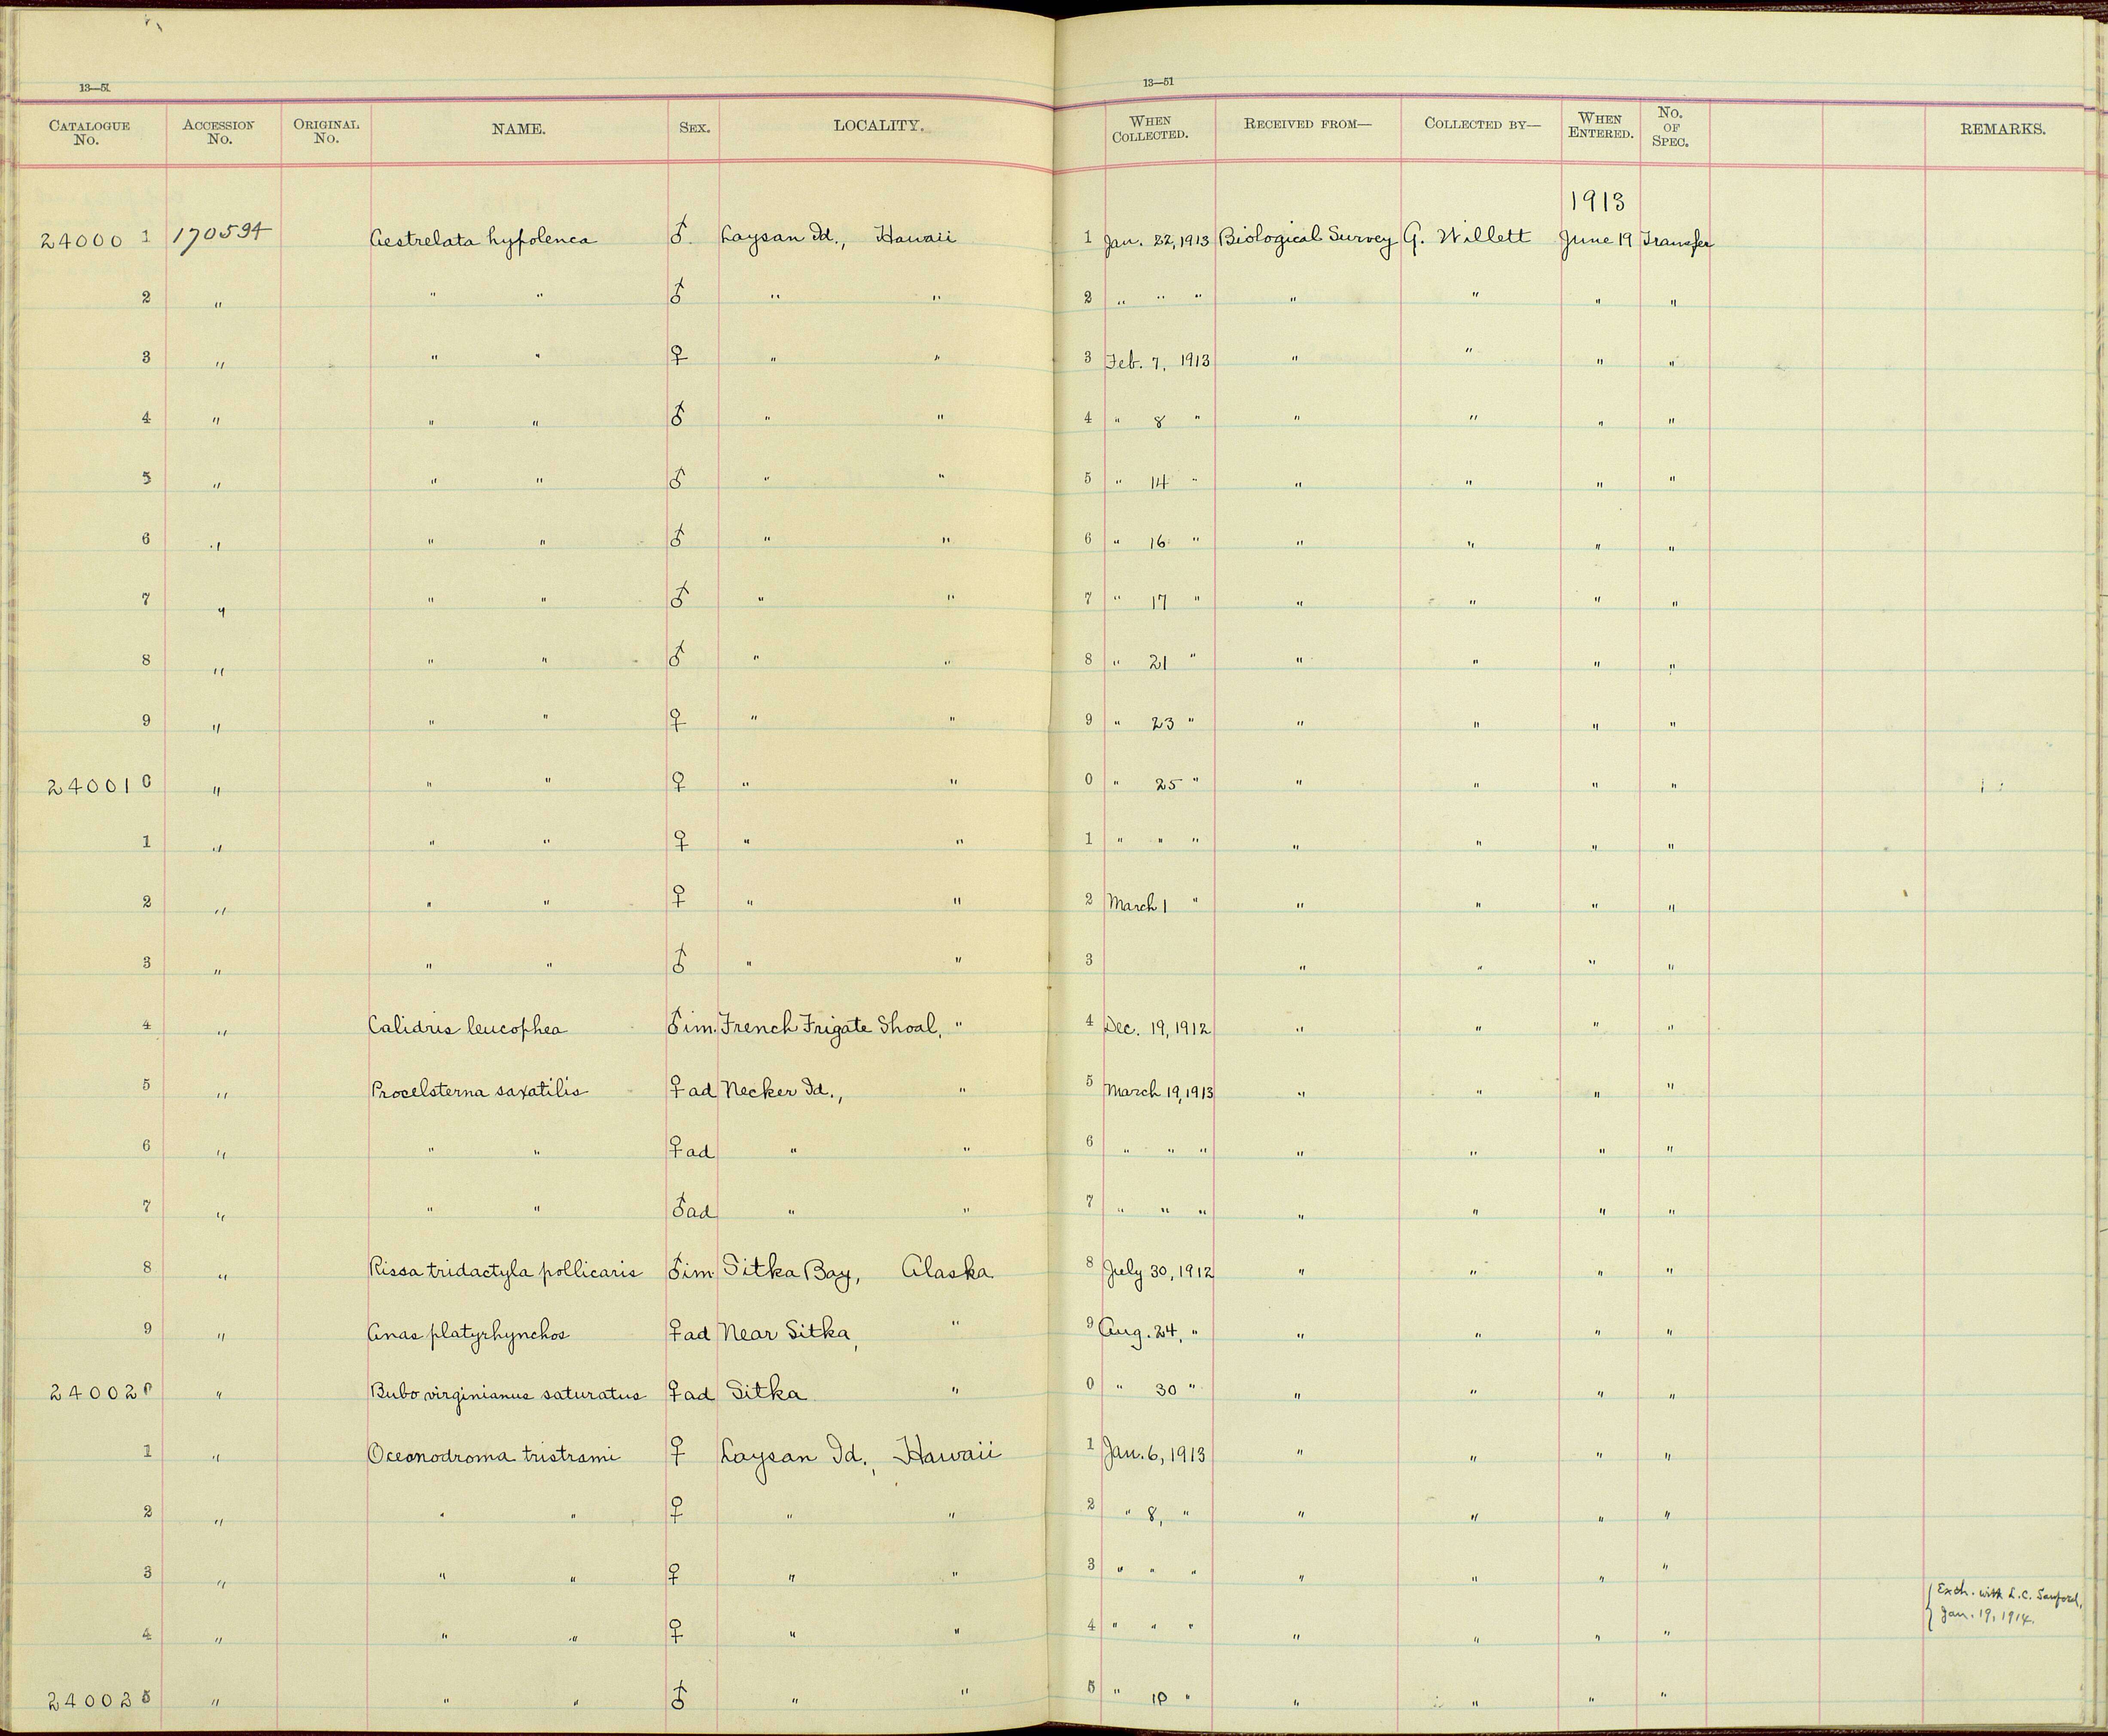 13—51
13—51
CATALOGUE No. ACCESSION No. ORIGINAL No. NAME. SEX. LOCALITY. WHEN COLLECTED. RECEIVED FROM— COLLECTED BY— WHEN ENTERED. No. OF SPEC. REMARKS.
1913
24000 1 170594 Aestrelata hypolenca ♂. Laysan Id., Hawaii 1 Jan. 22, 1913 Biological Survey G. Willett June 19 Transfer
2 " " " ♂ " " 2 " " " " " " "
3 " " " ♀ " " 3 Feb. 7, 1913 " " " "
4 " " " ♂ " " 4 " 8 " " " " "
5 " " " ♂ " " 5 " 14 " " " " "
6 " " " ♂ " " 6 " 16 " " " " "
7 " " " ♂ " " 7 " 17 " " " " "
8 " " " ♂ " " 8 " 21 " " " " "
9 " " " ♀ " " 9 " 23 " " " " "
24001 0 " " " ♀ " " 0 " 25 " " " " "
1 " " " ♀ " " 1 " " " " " " "
2 " " " ♀ " " 2 March 1 " " " " "
3 " " " ♂ " " 3 " " " "
4 " Calidris leucophea ♂ im. French Frigate Shoal, " 4 Dec. 19, 1912 " " " "
5 " Procelsterna saxatilis ♀ ad Necker Id., " 5 March 19, 1913 " " " "
6 " " " ♀ ad " " 6 " " " " " " "
7 " " " ♂ ad " " 7 " " " " " " "
8 " Rissa tridactyla pollicaris ♂ im Sitka Bay, Alaska 8 July 30, 1912 " " " "
9 " Anas platyrhynchos ♀ ad Near Sitka, " 9 Aug. 24, " " " " "
24002 0 " Bubo virginianus saturatus ♀ ad Sitka " 0 " 30 " " " " "
1 " Oceonodroma tristrami ♀ Laysan Id., Hawaii 1 Jan. 6, 1913 " " " "
2 " " " ♀ " " 2 " 8, " " " " "
3 " " " ♀ " " 3 " " " " " " "
4 " " " ♀ " " 4 " " " " " " " { Exch. with L. C. Sanford,
Jan. 19, 1914.
24002 5 " " " ♂ " " 5 " 10 " " " " "